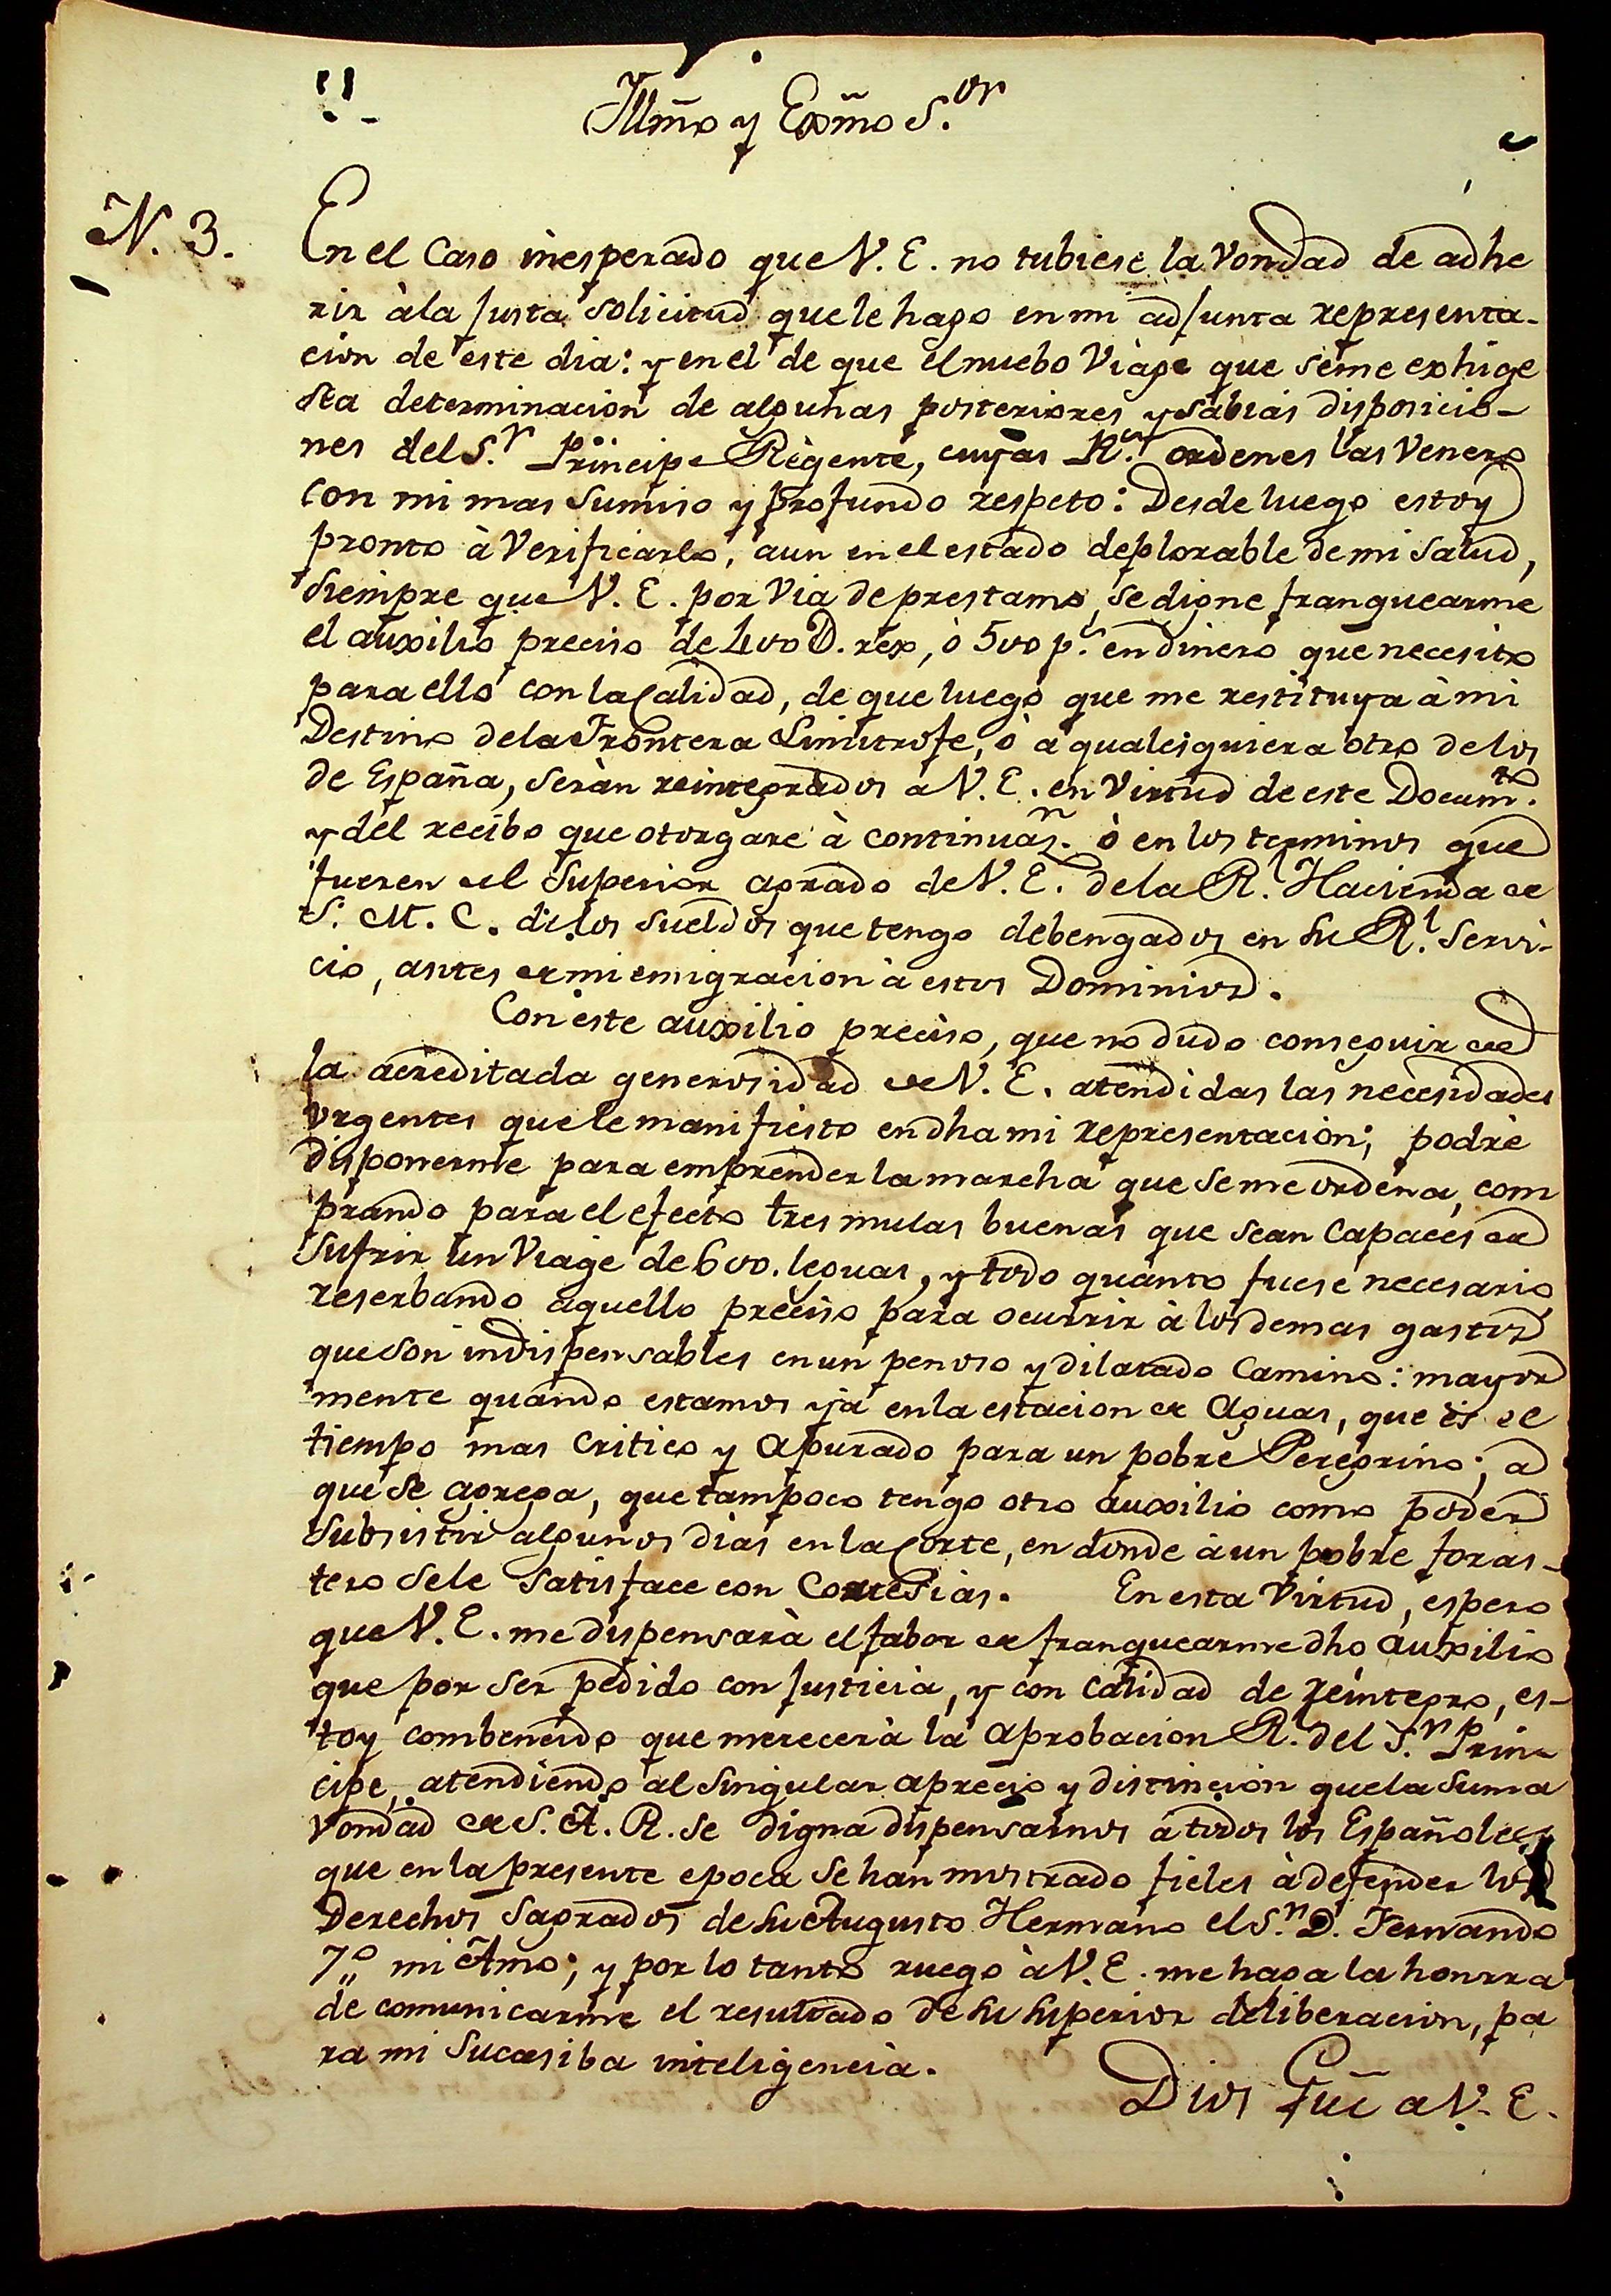 Illm̃o y Exm̃o S.or
N. 3.
En el Caso inesperado que V. E. no tubiese la Vondad de adhe
rir à la justa solicitud que le hago en mi adjunta representa-
cion de este dia: y en el de que el nuebo Viage que se me exhige
sea determinacion de algunas posteriores y sabias disposicio-
nes del S.r Principe Regente, cuyas R.s ordenes las Venero
con mi mas sumiso y profundo respeto: Desde luego estoy
pronto à Verificarlo, aun en el estado deplorable de mi salud,
siempre que V. E. por Via de prestamo, se digne franquearme
el auxilio preciso de 400 D. rex, ò 500 p.s en dinero que necesito
para ello con la Calidad, de que luego que me restituya à mi
Destino de la Frontera Limitrofe, ò à qualesquiera otro de los
de España, seràn reintegrados à V. E. en Virtud de este Docum.to
y del recibo que otorgare à continuan. ò en los terminos que
fueren del Superior agrado de V. E. de la R.l Hacienda de
S. M. C. de los sueldos que tengo debengados en su R.l Servi-
cio, antes de mi emigracion à estos Dominios.
Con este auxilio preciso, que no dudo conseguir de
la acreditada generosidad de V. E. atendidas las necesidades
urgentes que le manifiesto en dha mi representacion; podrè
disponerme para emprender la marcha que se me ordena, com
prando para el efecto tres mulas buenas que sean Capaces de
sufrir un Viage de 600. leguas, y todo quanto fuese necesario
reserbando aquello preciso para ocurrir à los demas gastos
que son indispensables en un penoso y dilatado Camino: mayor
mente quando estamos ya en la estacion de Aguas, que es el
tiempo mas Critico y apurado para un pobre Peregrino; a
que se agrega, que tampoco tengo otro auxilio como poder
subsistir algunos dias en la Corte, en donde à un pobre foras-
tero se le satisface con Cortesias. En esta Virtud, espero
que V. E. me dispensarà el fabor de franquearme dho auxilio
que por ser pedido con justicia, y con calidad de reintegro, es-
toy combencido que merecerà la aprobacion R.l del S.r Prin-
cipe, atendiendo al singular aprecio y distincion que la suma
Vondad de S. A. R. se digna dispensarnos à todos los Españoles
que en la presente epoca se han mostrado fieles à defender los
Derechos Sagrados de su Augusto Hermano el S.r D. Fernando
7.o mi Amo; y por lo tanto ruego à V. E. me haga la honrra
de comunicarme el resultado de su superior deliberacion, pa
ra mi sucesiba inteligencia.
Dios Gũe a V. E.